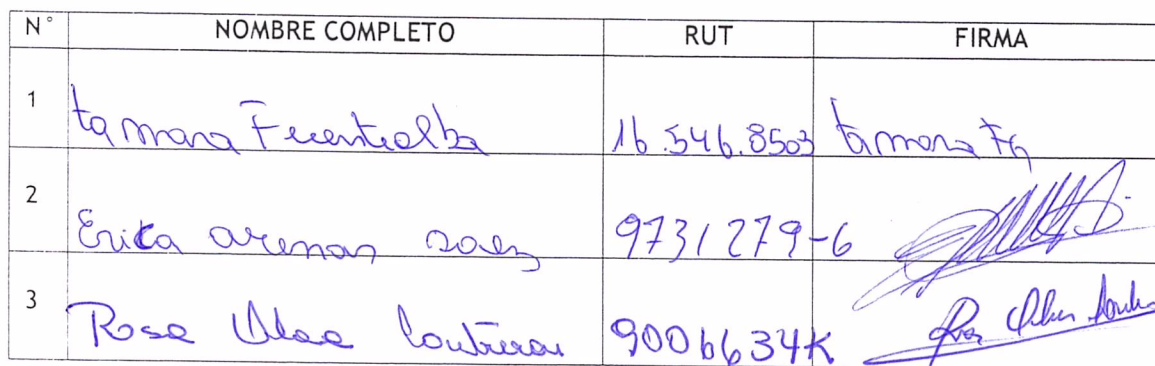 N° NOMBRE COMPLETO RUT FIRMA
1 tamara Fuentealba 16.546.8503 tamara
2 Erica arenas saez 9731279-6
3 Rosa Ulloa Contreras 9006634K Rosa